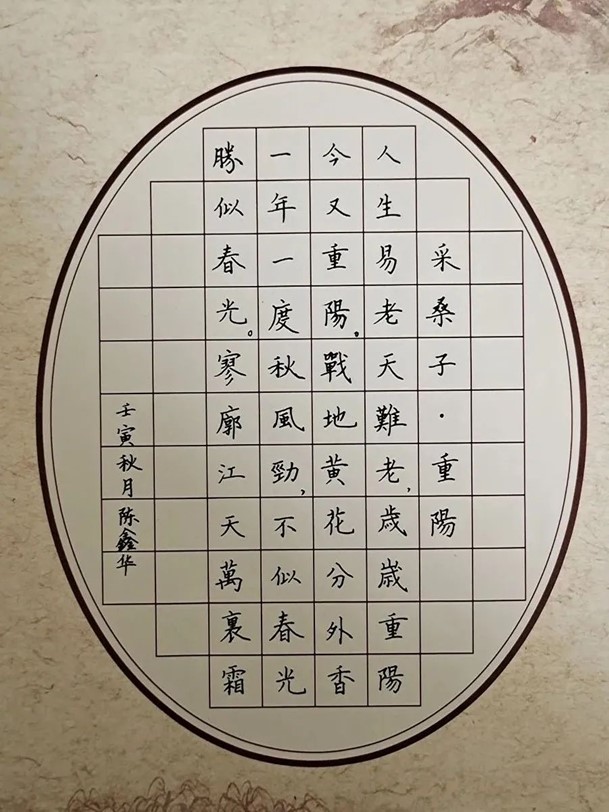 采桑子·重陽
人生易老天難老,歲歲重陽
今又重陽。戰地黄花分外香
一年一度秋風勁,不似春光
勝似春光。寥廓江天萬裏霜
壬寅秋月陈鑫华